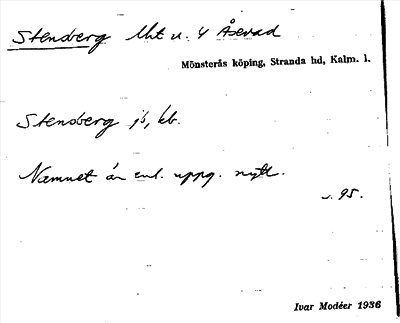 Stensberg lht u. 4 Åsevad
Mönsterås köping, Stranda hd, Kalm. l.
Stensberg js, kb.
Namnet är enl. uppg. nytt.
v. 95.
Ivar Modéer 1936